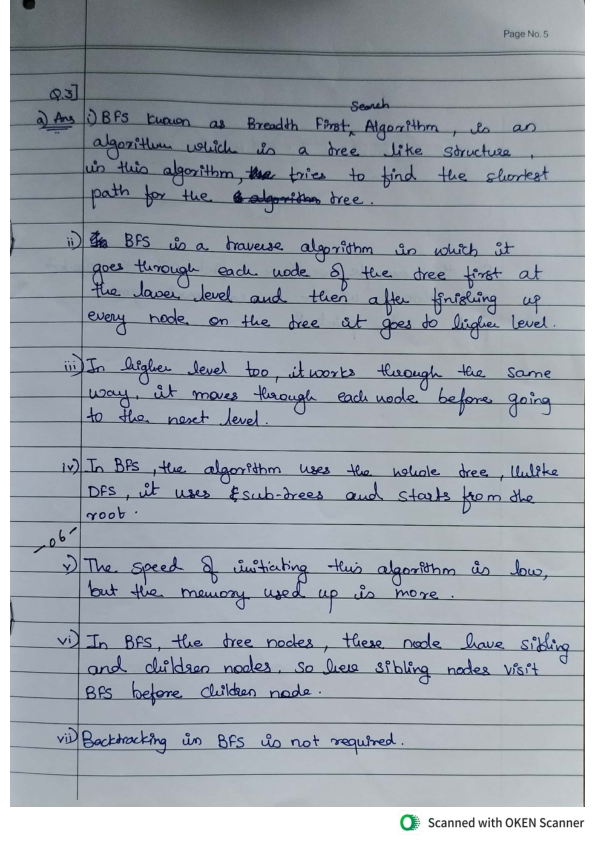 Page No. 5
Q.3]
Search
a) Ans i) BFS known as Breadth First, Algorithm, is an
algorithm which is a tree like structure,
in this algorithm, the tries to find the shortest
path for the algorithm tree.
ii) BFS is a traverse algorithm in which it
goes through each node of the tree first at
the lower level and then after finishing up
every node on the tree it goes to higher level.
iii) In higher level too, it works through the same
way, it moves through each node before going
to the next level.
iv) In BFS, the algorithm uses the whole tree, Unlike
DFS, it uses sub-trees and starts from the
root.
-06-
v) The speed of initiating this algorithm is low,
but the memory used up is more.
vi) In BFS, the tree nodes, these node have sibling
and children nodes, so here sibling nodes visit
BFS before children node.
vii) Backtracking in BFS is not required.
Scanned with OKEN Scanner